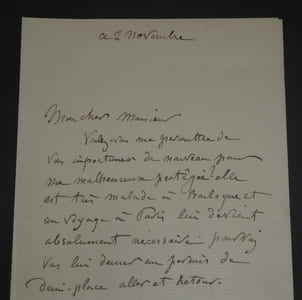 ce 2 Novembre
Mon cher Monsieur
Voulez-vous me permettre de
vous importuner de nouveau pour
ma malheureuse protégée? elle
est très malade à Boulogne et
un voyage à Paris lui devient
absolument nécessaire pourriez
vous lui donner un permis de
demi-place aller et retour.